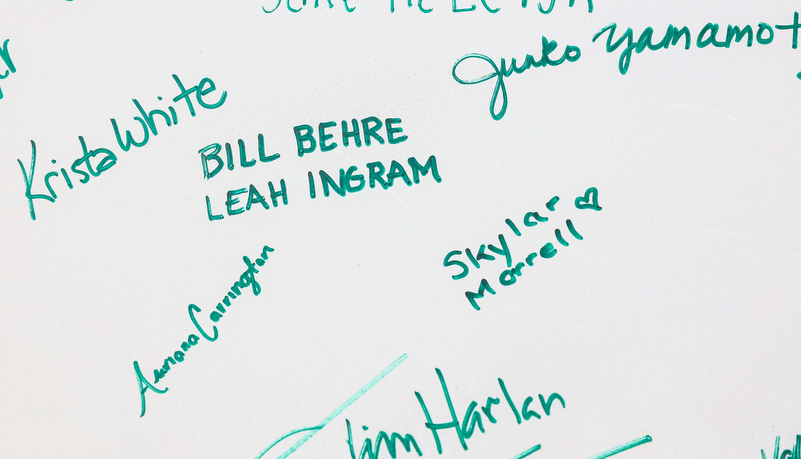 Junko Yamamot
Krista White
BILL BEHRE
LEAH INGRAM
Skylar ♡
Morrell
Carrington
Jim Harlan